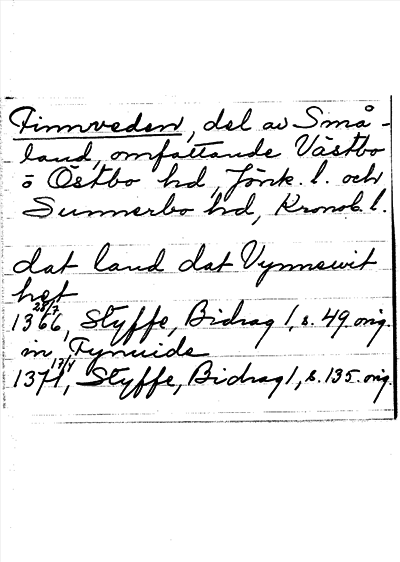 Finnveden, del av Små-
land, omfattande Västbo
o Östbo hd, Jönk. l. och
Sunnerbo hd, Kronob. l.
dat land dat Vynnewit
het
28/7
1366, Styffe, Bidrag 1, s. 49. orig.
in Fynwide
17/4
1371, Styffe, Bidrag 1, s. 135. orig.